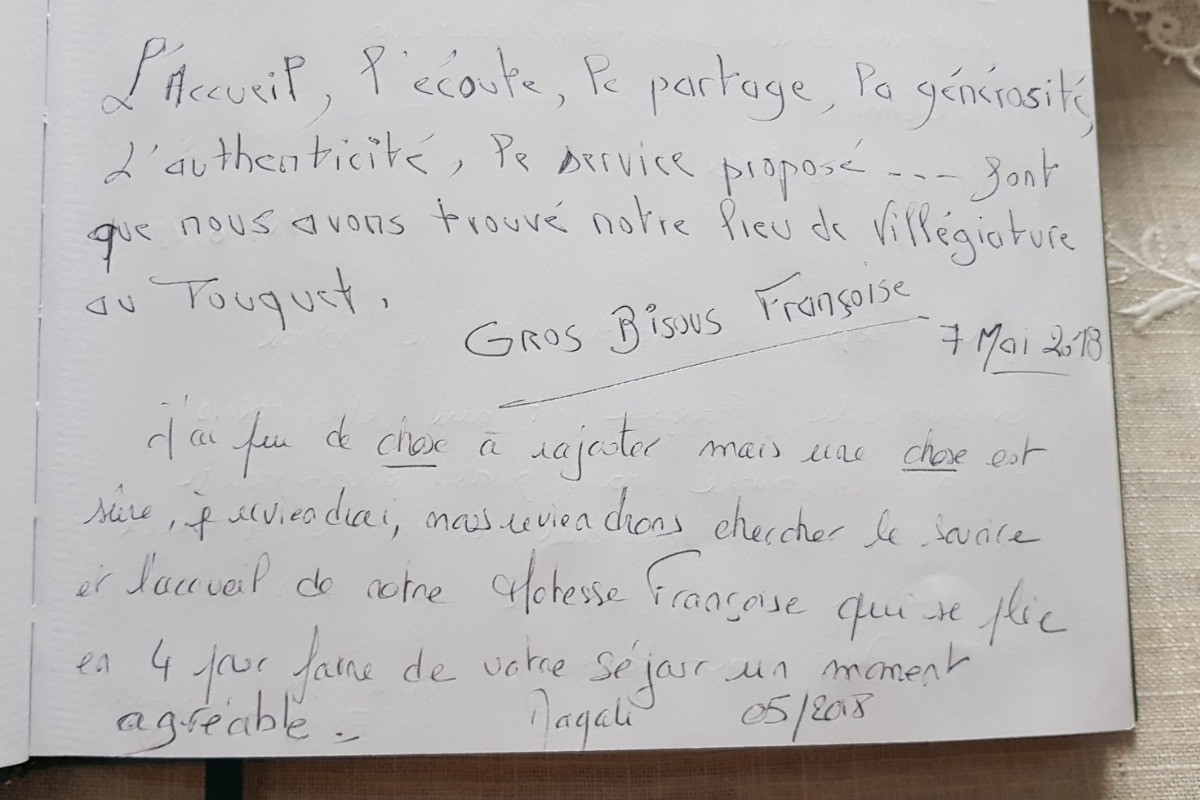 L'Accueil, l'écoute, le partage, la générosité,
L'authenticité, le service proposé --- font
que nous avons trouvé notre lieu de villégiature
au Touquet.
GROS BISOUS Françoise
7 Mai 2018
j'ai peu de chose à rajouter mais une chose est
sûre, je reviendrai, nous reviendrons chercher le sourire
et l'accueil de notre Hotesse Françoise qui se plie
en 4 pour faire de votre séjour un moment
agréable.
Magali 05/2018